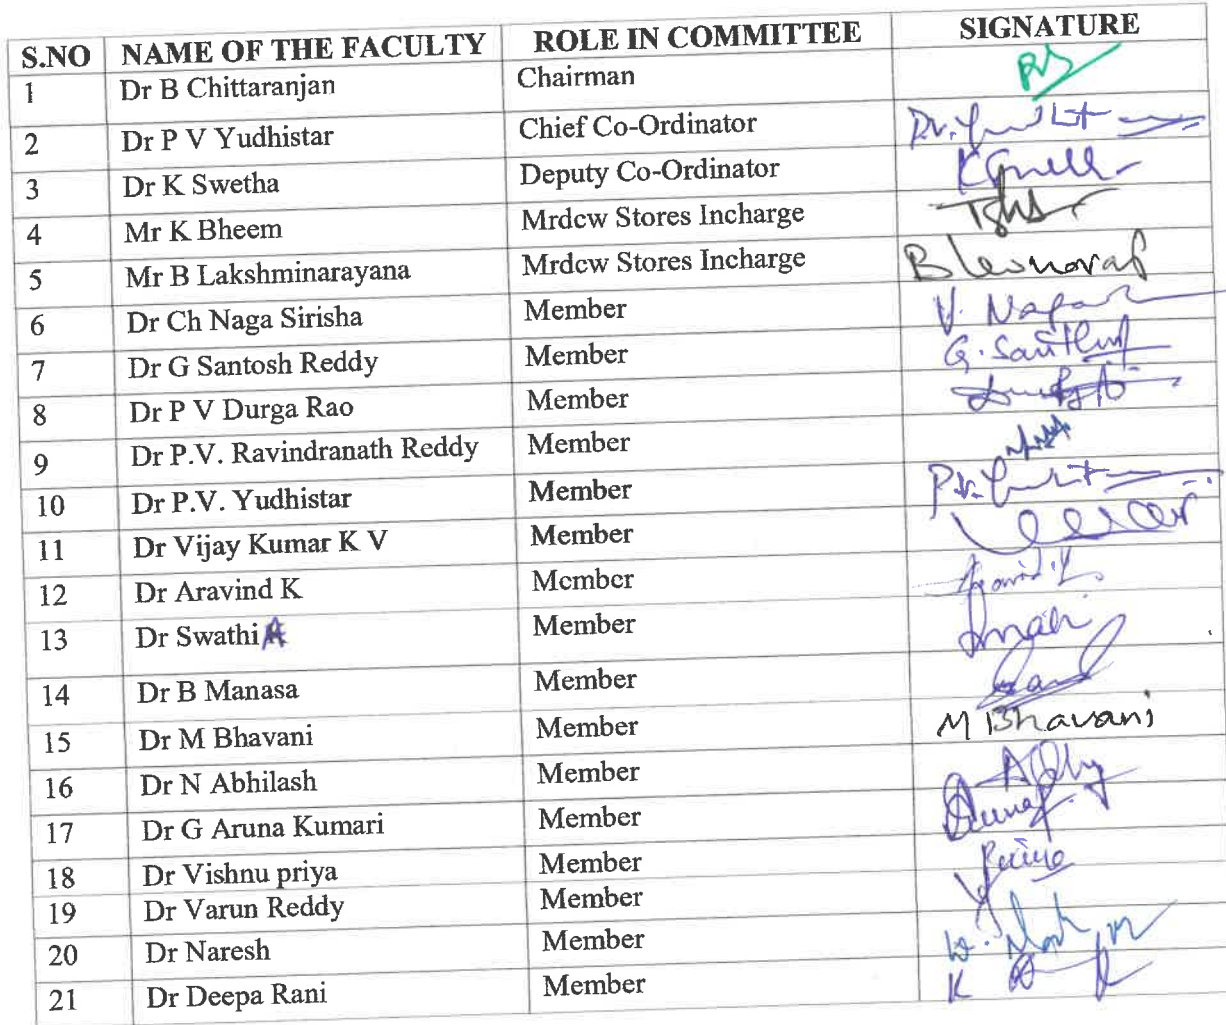 S.NO NAME OF THE FACULTY ROLE IN COMMITTEE SIGNATURE
1 Dr B Chittaranjan Chairman
2 Dr P V Yudhistar Chief Co-Ordinator
3 Dr K Swetha Deputy Co-Ordinator
4 Mr K Bheem Mrdcw Stores Incharge
5 Mr B Lakshminarayana Mrdcw Stores Incharge
6 Dr Ch Naga Sirisha Member
7 Dr G Santosh Reddy Member
8 Dr P V Durga Rao Member
9 Dr P.V. Ravindranath Reddy Member
10 Dr P.V. Yudhistar Member
11 Dr Vijay Kumar K V Member
12 Dr Aravind K Member
13 Dr Swathi A Member
14 Dr B Manasa Member
15 Dr M Bhavani Member M Bhavani
16 Dr N Abhilash Member
17 Dr G Aruna Kumari Member
18 Dr Vishnu priya Member
19 Dr Varun Reddy Member
20 Dr Naresh Member
21 Dr Deepa Rani Member